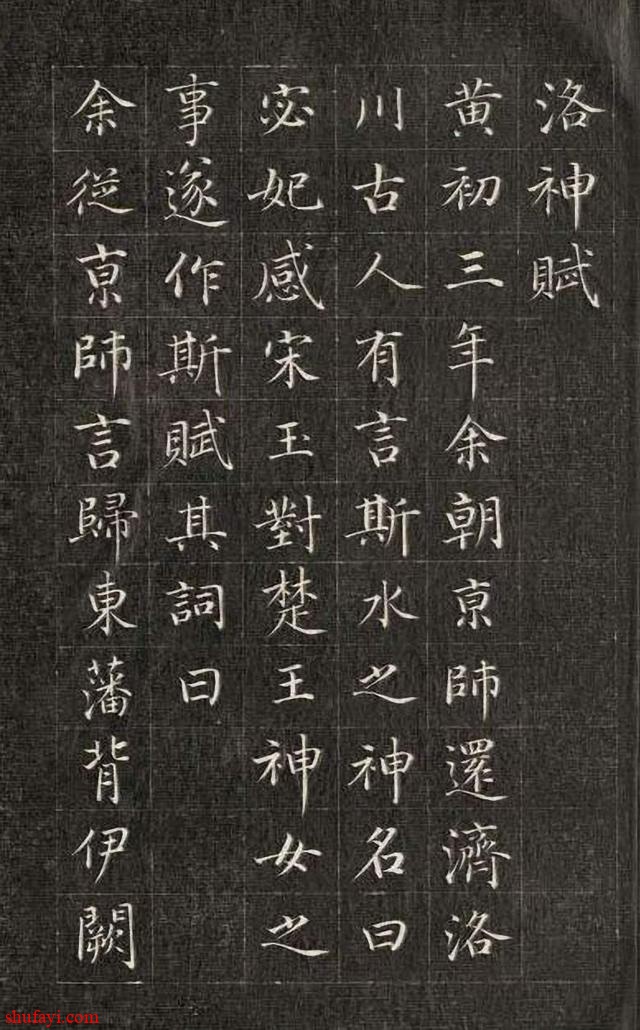 洛神賦
黃初三年余朝京師還濟洛
川古人有言斯水之神名曰
宓妃感宋玉對楚王神女之
事遂作斯賦其詞曰
余從京師言歸東藩背伊闕
shufayi.com